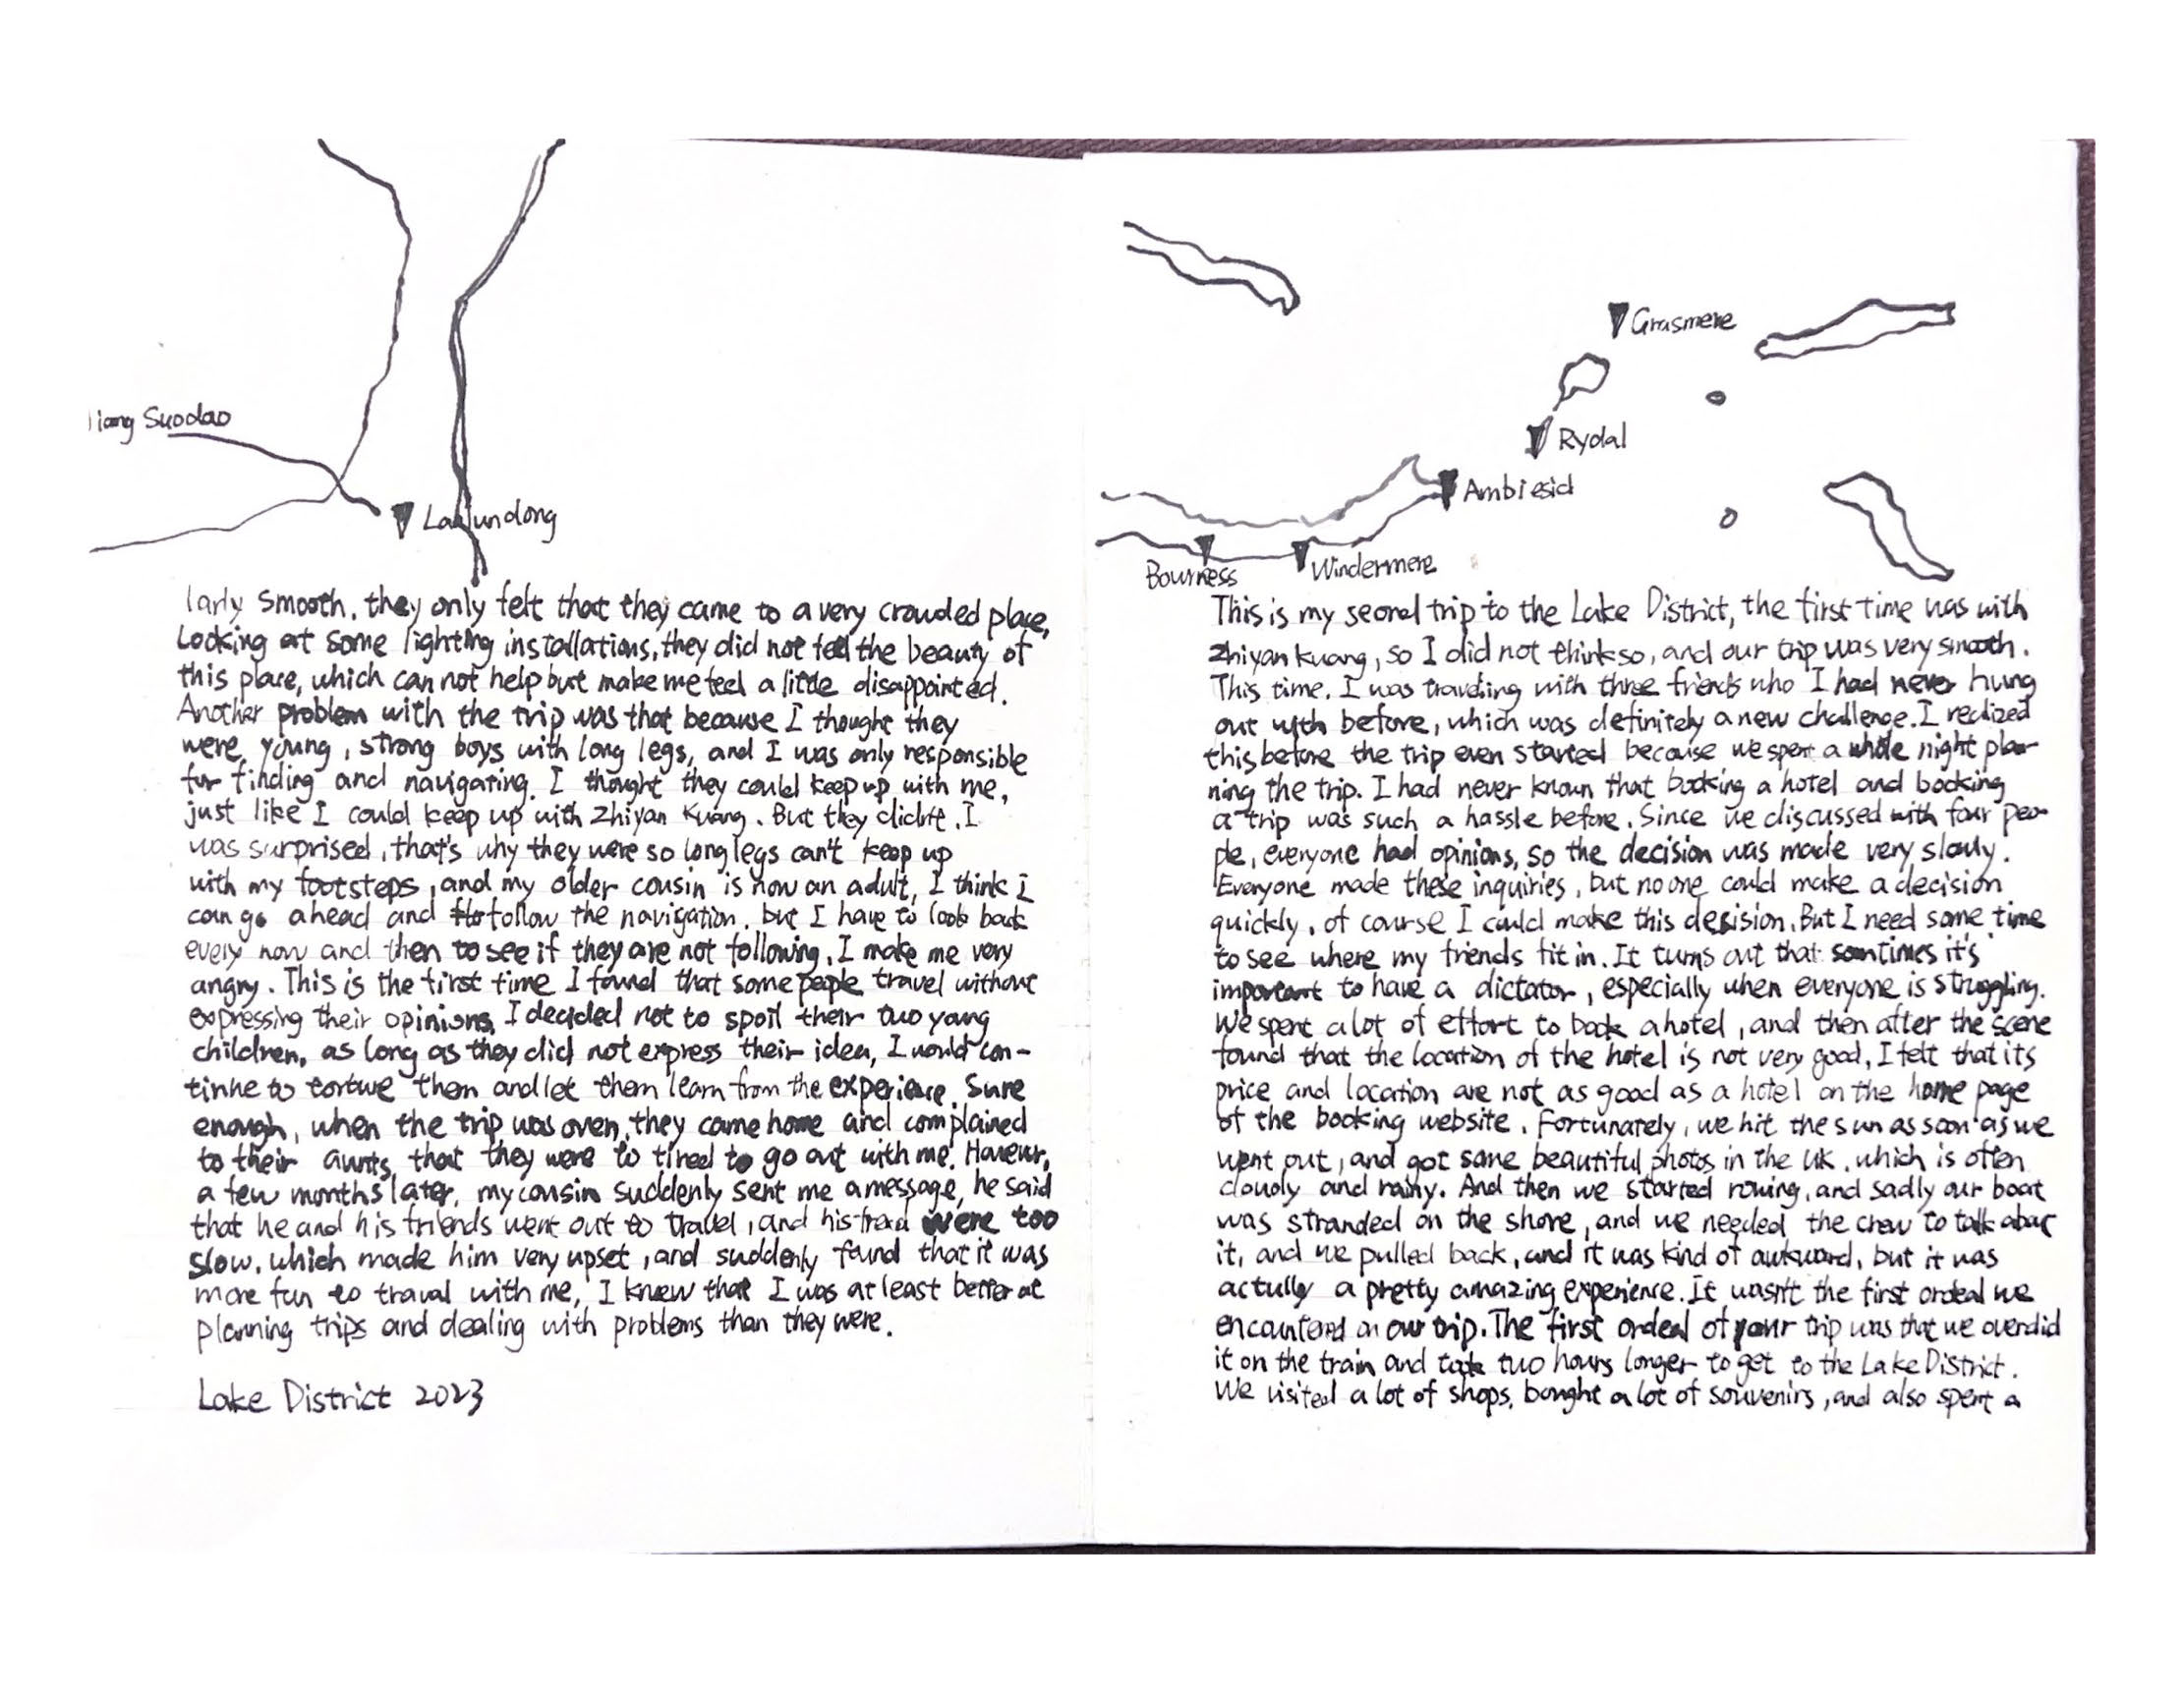 liang Suodao
Laojundong
larly smooth, they only felt that they came to a very crowded place,
Looking at some lighting installations, they did not feel the beauty of
this place, which can not help but make me feel a little disappointed.
Another problem with the trip was that because I thought they
were young, strong boys with long legs, and I was only responsible
for finding and navigating. I thought they could keep up with me,
just like I could keep up with Zhiyan Kuang. But they didn't. I
was surprised, that's why they were so long legs can't keep up
with my footsteps, and my older cousin is now an adult, I think I
can go ahead and follow the navigation. but I have to look back
every now and then to see if they are not following, I make me very
angry. This is the first time I found that some people travel without
expressing their opinions, I decided not to spoil their two young
children, as long as they did not express their idea, I would con-
tinhe to torture them and let them learn from the experience. Sure
enough, when the trip was oven, they came home and complained
to their aunts that they were to tired to go out with me. However,
a few months later, my cousin suddenly sent me a message, he said
that he and his friends went out to travel, and his friend were too
slow, which made him very upset, and suddenly found that it was
more fun to traval with me, I know that I was at least better at
planning trips and dealing with problems than they were.
Lake District 2023
Grasmere
Rydal
Ambiesid
Windermere
Bourness
This is my seond trip to the Lake District, the first time was with
Zhiyan kuang, so I did not think so, and our trip was very smooth.
This time. I was traveling with three friends who I had never hung
out with before, which was definitely a new challenge. I realized
this before the trip even started because we spent a whole night plan-
ning the trip. I had never known that booking a hotel and booking
a trip was such a hassle before. Since we discussed with four peo-
ple, everyone had opinions, so the decision was made very slowly.
Everyone made these inquiries, but no one could make a decision
quickly, of course I could make this decision. But I need some time
to see where my friends fit in. It turns out that somtimes it's
important to have a dictator, especially when everyone is struggling.
We spent a lot of effort to book a hotel, and then after the scene
found that the location of the hotel is not very good, I felt that its
price and location are not as good as a hotel on the home page
of the booking website. Fortunately, we hit the sun as soon as we
went out, and got some beautiful photos in the UK, which is often
cloudy and rainy. And then we started rowing, and sadly our boat
was stranded on the shore, and we needed the crew to talk about
it, and we pulled back, and it was kind of awkward, but it was
actully a pretty amazing experience. It wasn't the first ordeal we
encountered on our trip. The first ordeal of your trip was that we overdid
it on the train and took two hours longer to get to the Lake District.
We visited a lot of shops, bought a lot of souvenirs, and also spent a